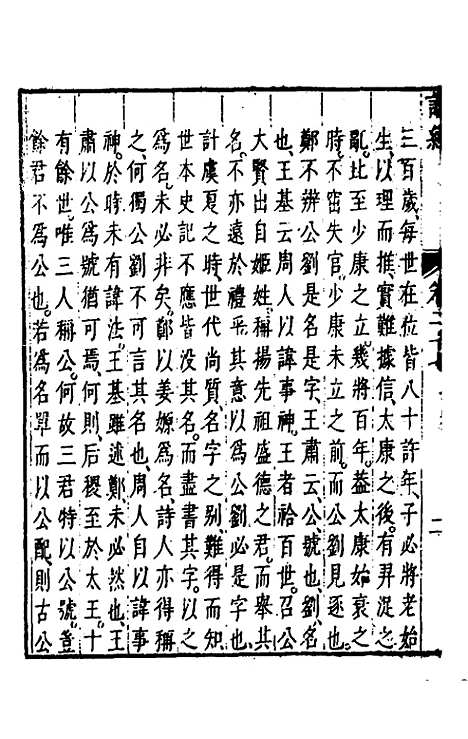 三百歲每世在位皆八十許年子必將老始
生以理而推實難據信太康之後有羿浞之
亂比至少康之立幾將百年蓋太康始衰之
時不窋失官少康未立之前而公劉見逐也
鄭不辨公劉是名是字王肅云公號也劉名
也王基云周人以諱事神王者祫百世召公
大賢出自姬姓稱揚先祖盛德之君而舉其
名不亦遠於禮乎其意以爲公劉必是字也
計虞夏之時世代尚質名字之別難得而知
世本史記不應皆没其名而盡書其字以之
爲名未必非矣鄭以姜嫄爲名詩人亦得稱
之何獨公劉不可言其名也周人自以諱事
神於時未有諱法王基雖述鄭未必然也王
肅以公爲號猶可焉何則后稷至於太王十
有餘世唯三人稱公何故三君特以公號豈
餘君不爲公也若爲名單而以公配則古公